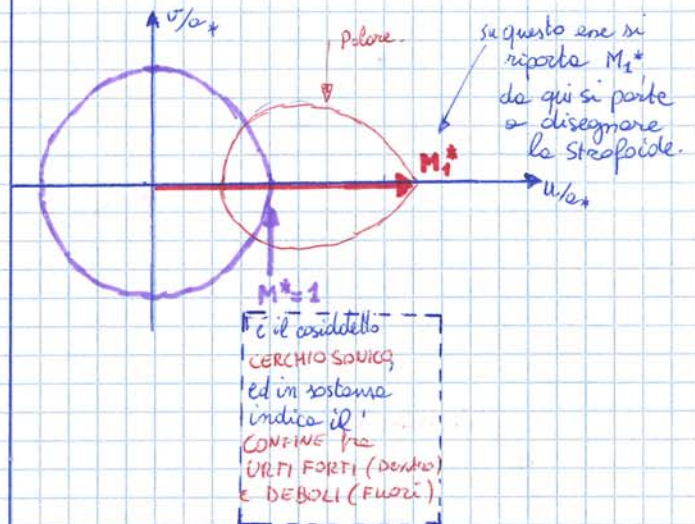 v/a*
Polare.
su questo asse si
riporta M₁*
da qui si parte
a disegnare
la Strofoide.
M₁*
u/a*
M*=1
è il cosiddetto
CERCHIO SONICO,
ed in sostanza
indica il
CONFINE fra
URTI FORTI (Dentro)
E DEBOLI (Fuori)